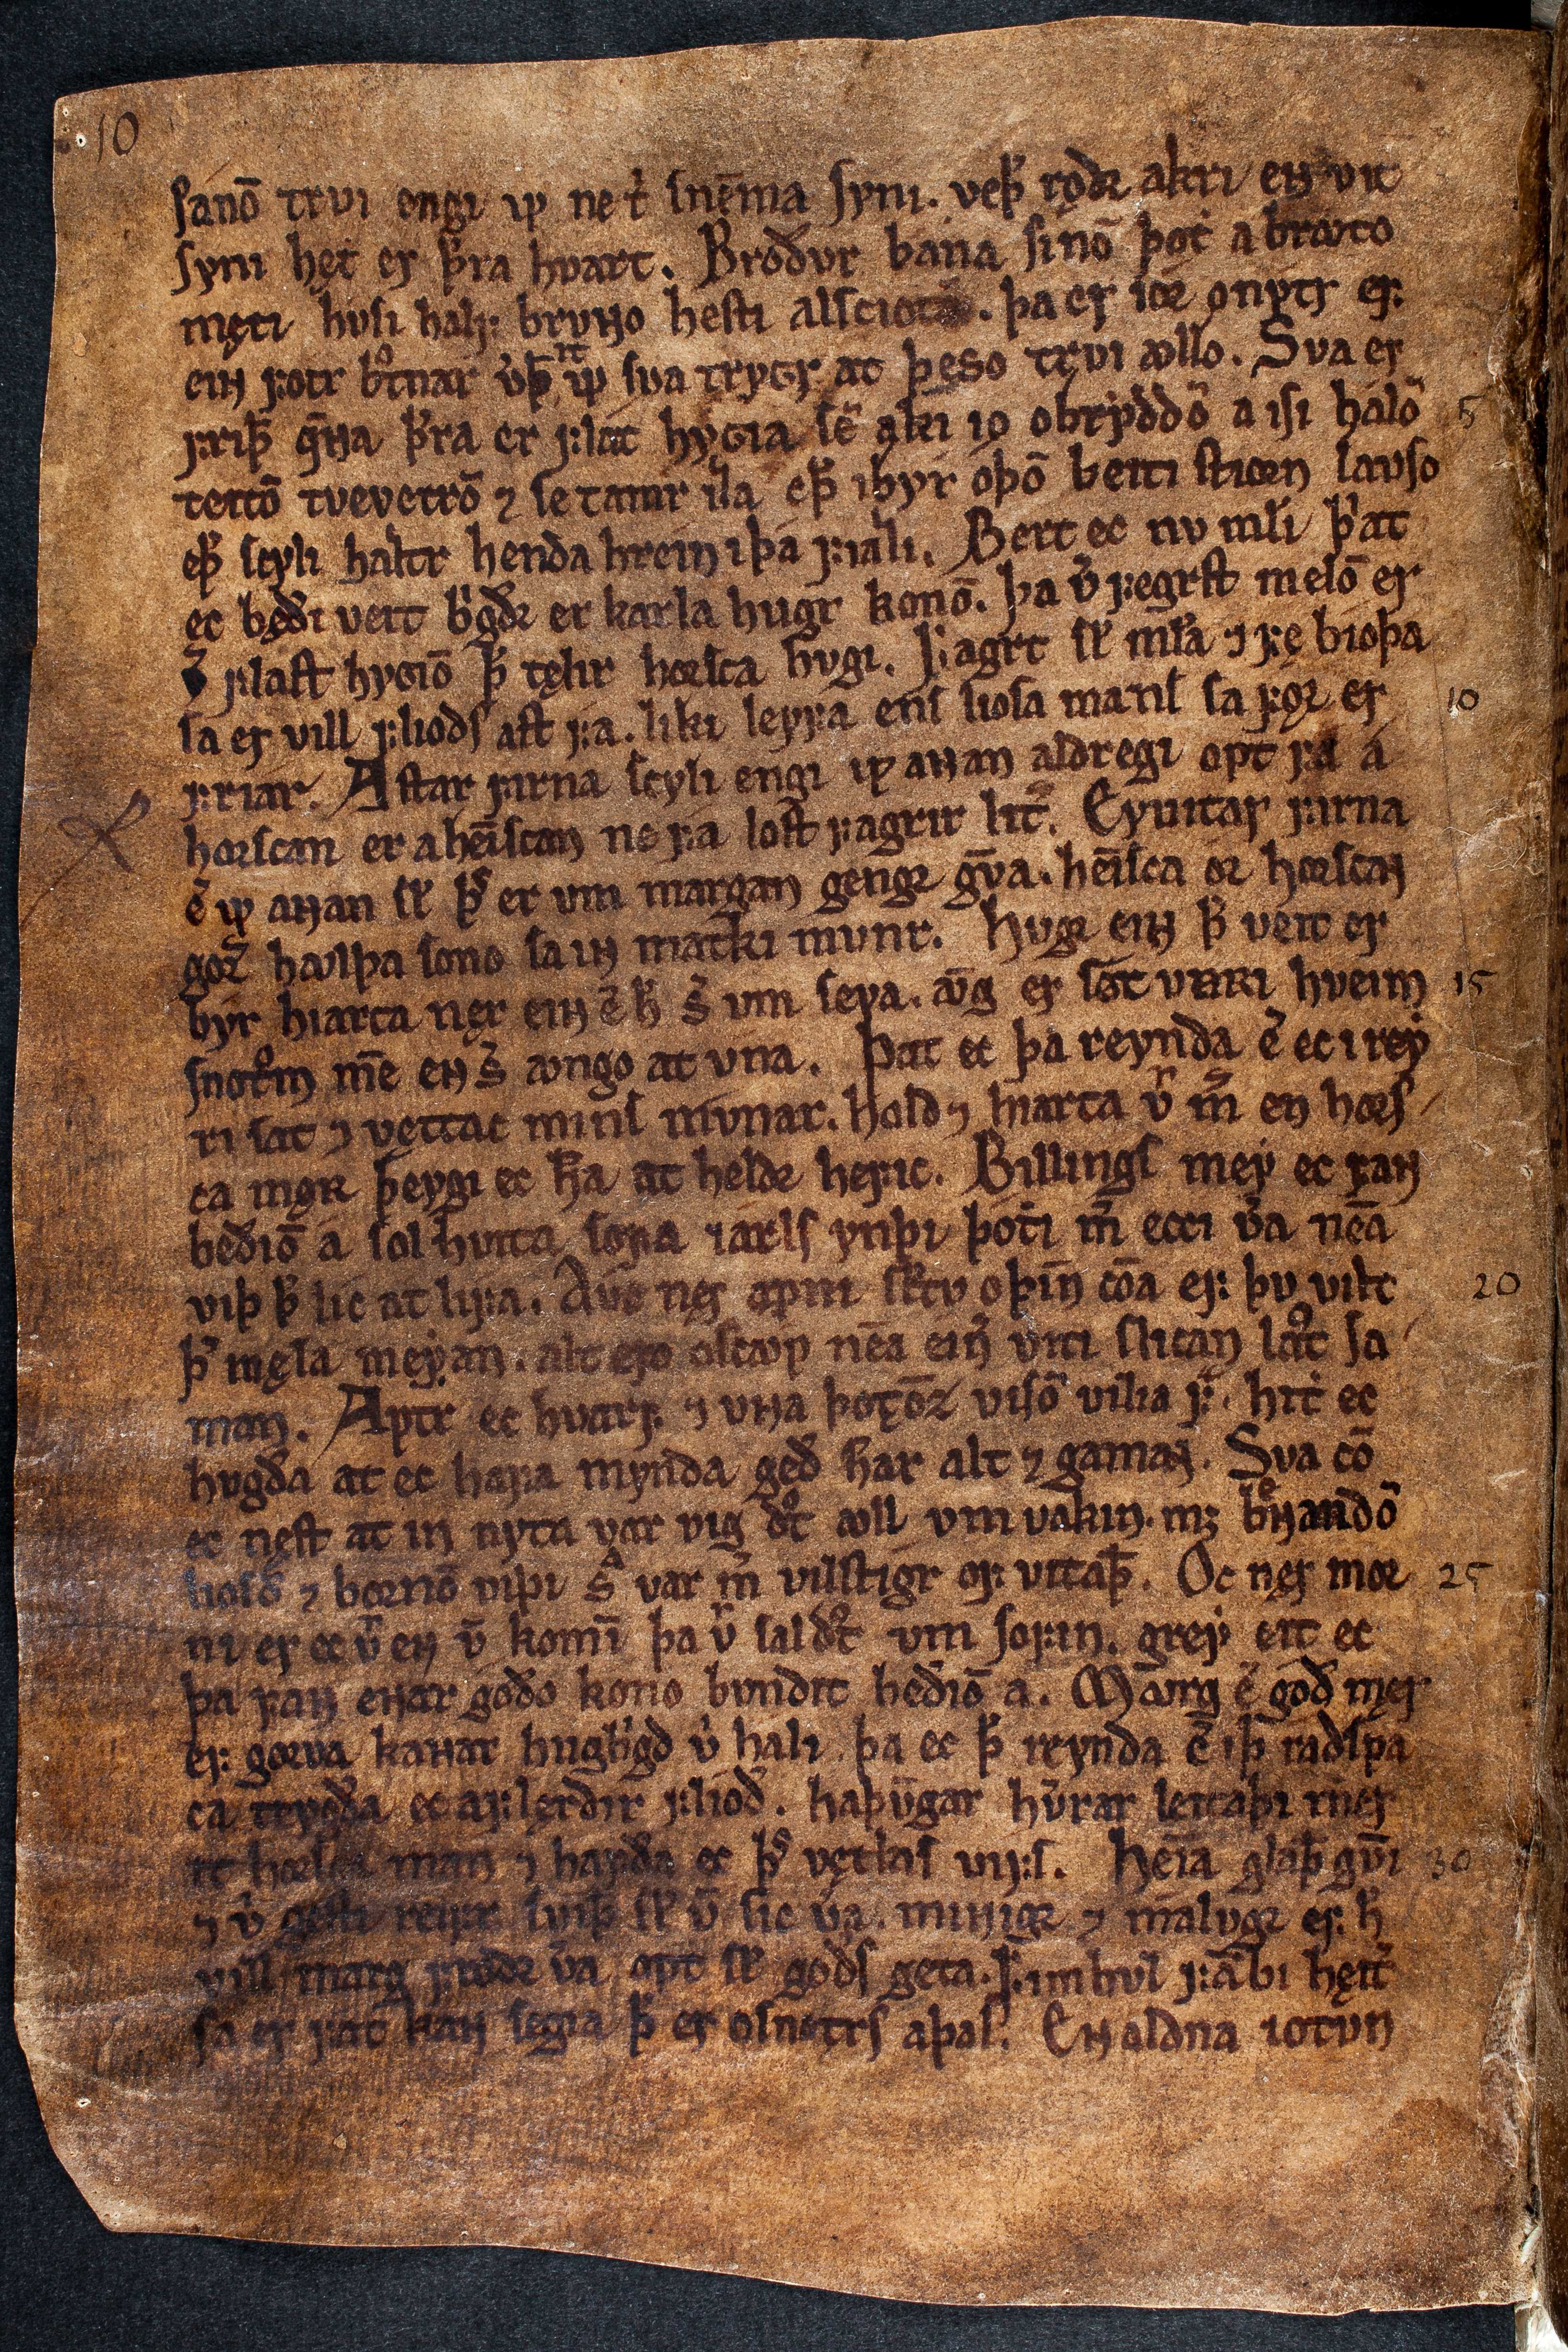 10
sanō trvi engi ꝩ̇ ne t᷎ snēma syni. veþ᷎ rǫðꝛ akri en vit
syni hęt er þ̄ra hvart. Broðvr bana sinō þot᷎ a brꜹto
męti hvsi halꝼ brvɴo hesti alscioto. þa er ioꝛ onytr eꝼ
eiɴ ꝼotr b͛tnar v͛þ͛ ꝩ̇ sva tryGr at þęso trvi ꜹllo. Sva er
ꝼriþ͛ q̄ɴa þ̄ra er ꝼlát hyGia sē ǫki ió obryddō a ísi hálō 5
teitō tvevetrō ⁊ se tamr illa eþ᷎ i byr óþō beiti stioꝛn lꜹso
eþ᷎ scyli haltr henda hrein i þá ꝼialli. Bert ec nv mli þ̄at
ec bęði veit b͛gðꝛ er karla hugr konō. þa v͛ ꝼegrst melō er
v͛ ꝼlast hyGiō þ̄ tęlir hoꝛsca hvgi. Ꝼagrt sł męla ⁊ ꝼę bioþa
sa er vill ꝼlioðs ast ꝼá. líki leyꝼa ens liósa mans sa ꝼǫꝛ er 10
ꝼriár. Astar ꝼirna scyli engi ꝩ̇ aɴan aldregi opt ꝼá á
hoꝛscan er a hēiscan ne ꝼá lostꝼagrir lit͛. Eyvitar ꝼirna
ē ꝩ̇ aɴan sł þ͛s er vm margan gengꝛ gv̄a. hēisca oꝛ hoꝛscan
goꝛ͛ hꜹlþa sono sa iɴ mátki mvnr. Hvgꝛ eiɴ þ̄ veit er
býr hiarta nęr eiɴ ē h̄ s͛ vm seva. ꜹ̄g er sót verri hveim 15
snotrom m̄e en s͛ ꜹngo at vna. Þat ec þa reynda ē ec i rey
ri sat ⁊ vęttac mins mvnar. hold ⁊ hiarta v͛ m̄ en hoꝛs
ca męꝛ þeygi ec h̄a at heldꝛ heꝼic. Billings mey ec ꝼaɴ
beðiō a sol hvita soꝼa iarls ynþi þotti m̄ ecci v͛a nēa
viþ þ̄ lic at liꝼa. Ꜹc nęr apni skaltv oþin cōa eꝼ þv vilt 20
þ͛ męla mey an. alt ero oscꜹp nēa eiɴ viti slican lꜹst sa
man. Aptr ec hvarꝼ ⁊ vɴa þotōz vísō vilia ꝼ͛. hitt ec
hvgða at ec haꝼa mynda geð h̄ar alt ⁊ gaman. Sva cō
ec nęst at in nyta var vig drót ꜹll vm vakin. mꝫ breɴandō
liosō ⁊ boꝛnō viþi s͛ var m̄ vilstígr oꝼ vitaþ͛. Oc nęr moꝛ 25
ni er ec v͛ en v̄ komiɴ þa v͛ saldrót vm soꝼin. grey eit ec
þa ꝼaɴ eɴar góðo kono bvndit beðiō á. Mꜹrg ē góð męr
eꝼ goꝛva kaɴar hugb͛gð v͛ hali. þa ec þ̄ reynda ē iþ ráðspa
ca teygða ec a ꝼlęrðir ꝼlióð. háþv̄gar hv͛rar leitaþi m͛ er
it hoꝛsca man ⁊ haꝼða ec þ͛s vętkis víꝼs. Hēia glaþ͛ gvmi 30
⁊ v͛ gesti reiꝼr sviþ͛ sł v̄ sic v͛a. miɴigꝛ ⁊ málvgꝛ eꝼ h̄
vill marg ꝼróðꝛ v͛a opt sł góðs geta. ꝼimbvl ꝼābi heitir
sa er ꝼát kaɴ segia þ̄ er osnotrs aþal. Eɴ aldna iotvn